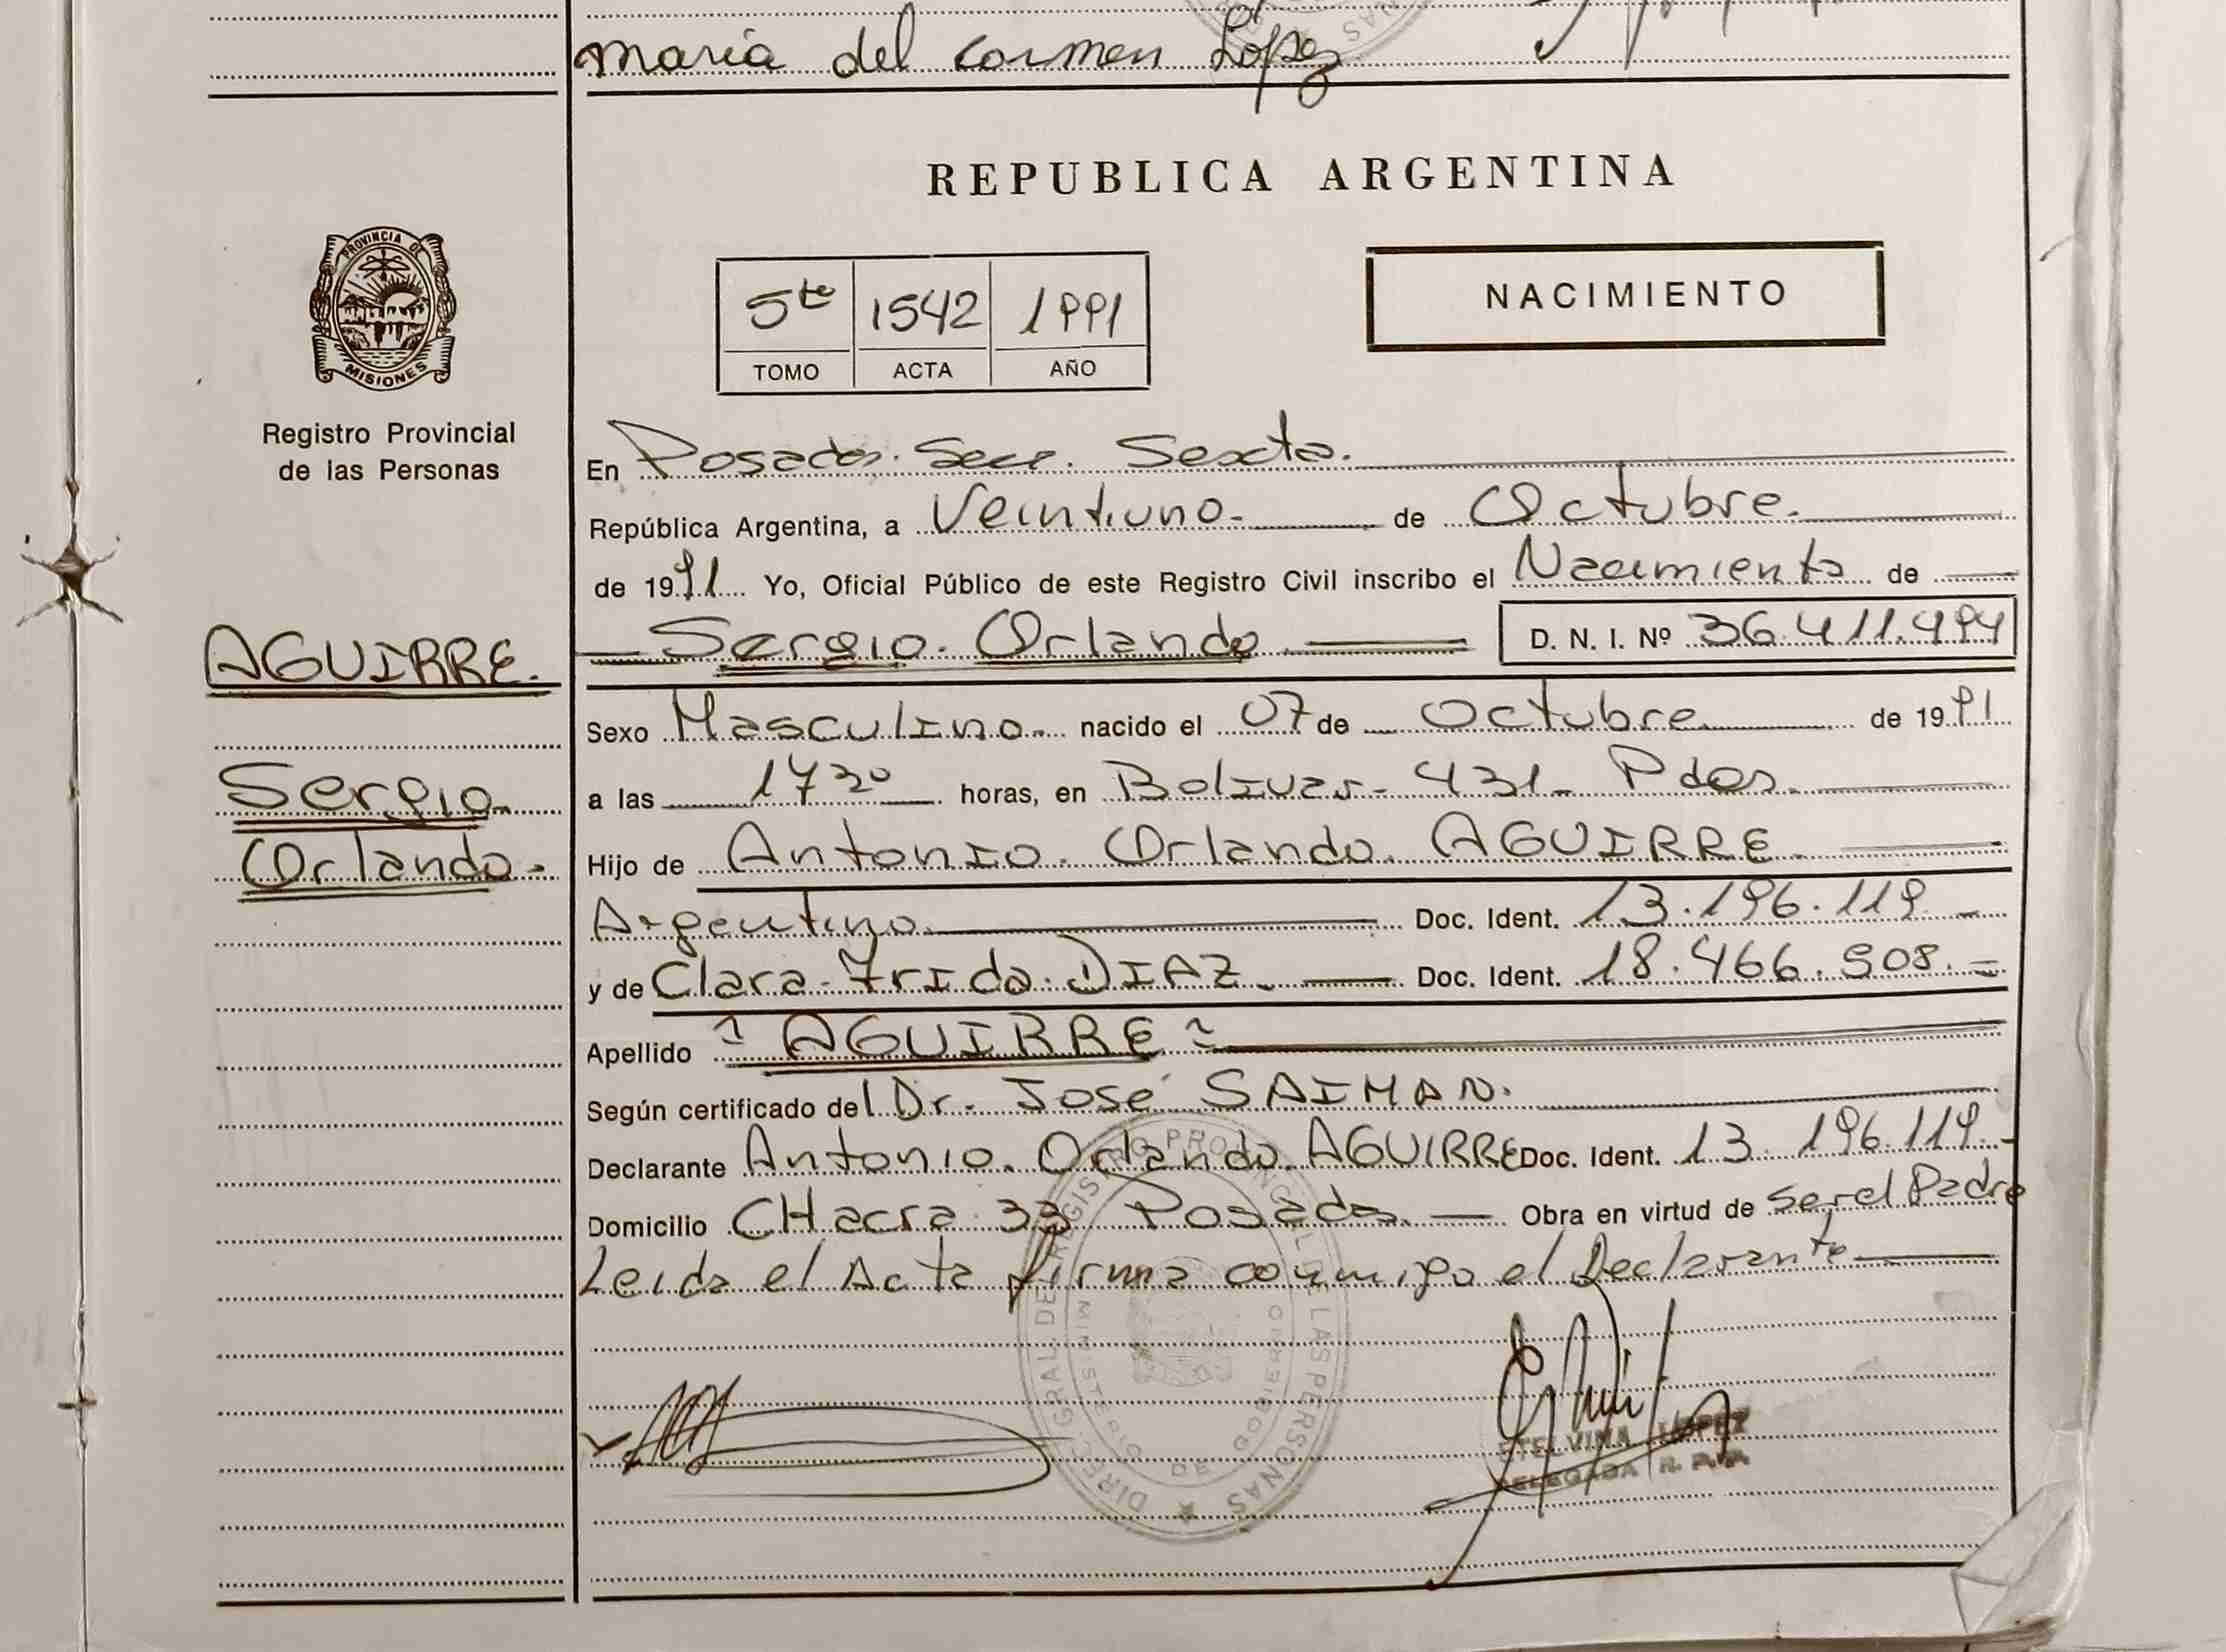 maria del Carmen López
REPUBLICA ARGENTINA
PROVINCIA DE
MISIONES
Registro Provincial
de las Personas
NACIMIENTO
5ta 1542 1991
TOMO ACTA AÑO
En Posadas. Secc. Sexta.
República Argentina, a Veintiuno. de Octubre.
de 1991 Yo, Oficial Público de este Registro Civil inscribo el Nacimiento de
AGUIRRE.
Sergio. Orlando D. N. I. Nº 36.411.494
Sexo Masculino. nacido el 07 de Octubre de 1991
Sergio
Orlando.
a las 17 30 horas, en Bolivar. 431. Pdas.
Hijo de Antonio. Orlando. AGUIRRE.
Argentino. Doc. Ident. 13.196.119.
y de Clara. Frida. DIAZ. Doc. Ident. 18.466.908.
Apellido "AGUIRRE"
Según certificado del Dr. José SAIMAN.
Declarante Antonio. Orlando. AGUIRRE Doc. Ident. 13.196.119.
Domicilio CHacra 33 Posadas. Obra en virtud de ser el Padre
Leida el Acta firma conmigo el Declarante
DIREC. GRAL. DE REGISTRO PROVINCIAL DE LAS PERSONAS
MINISTERIO DE GOBIERNO
ETELVINA LOPEZ
DELEGADA R. P. P.